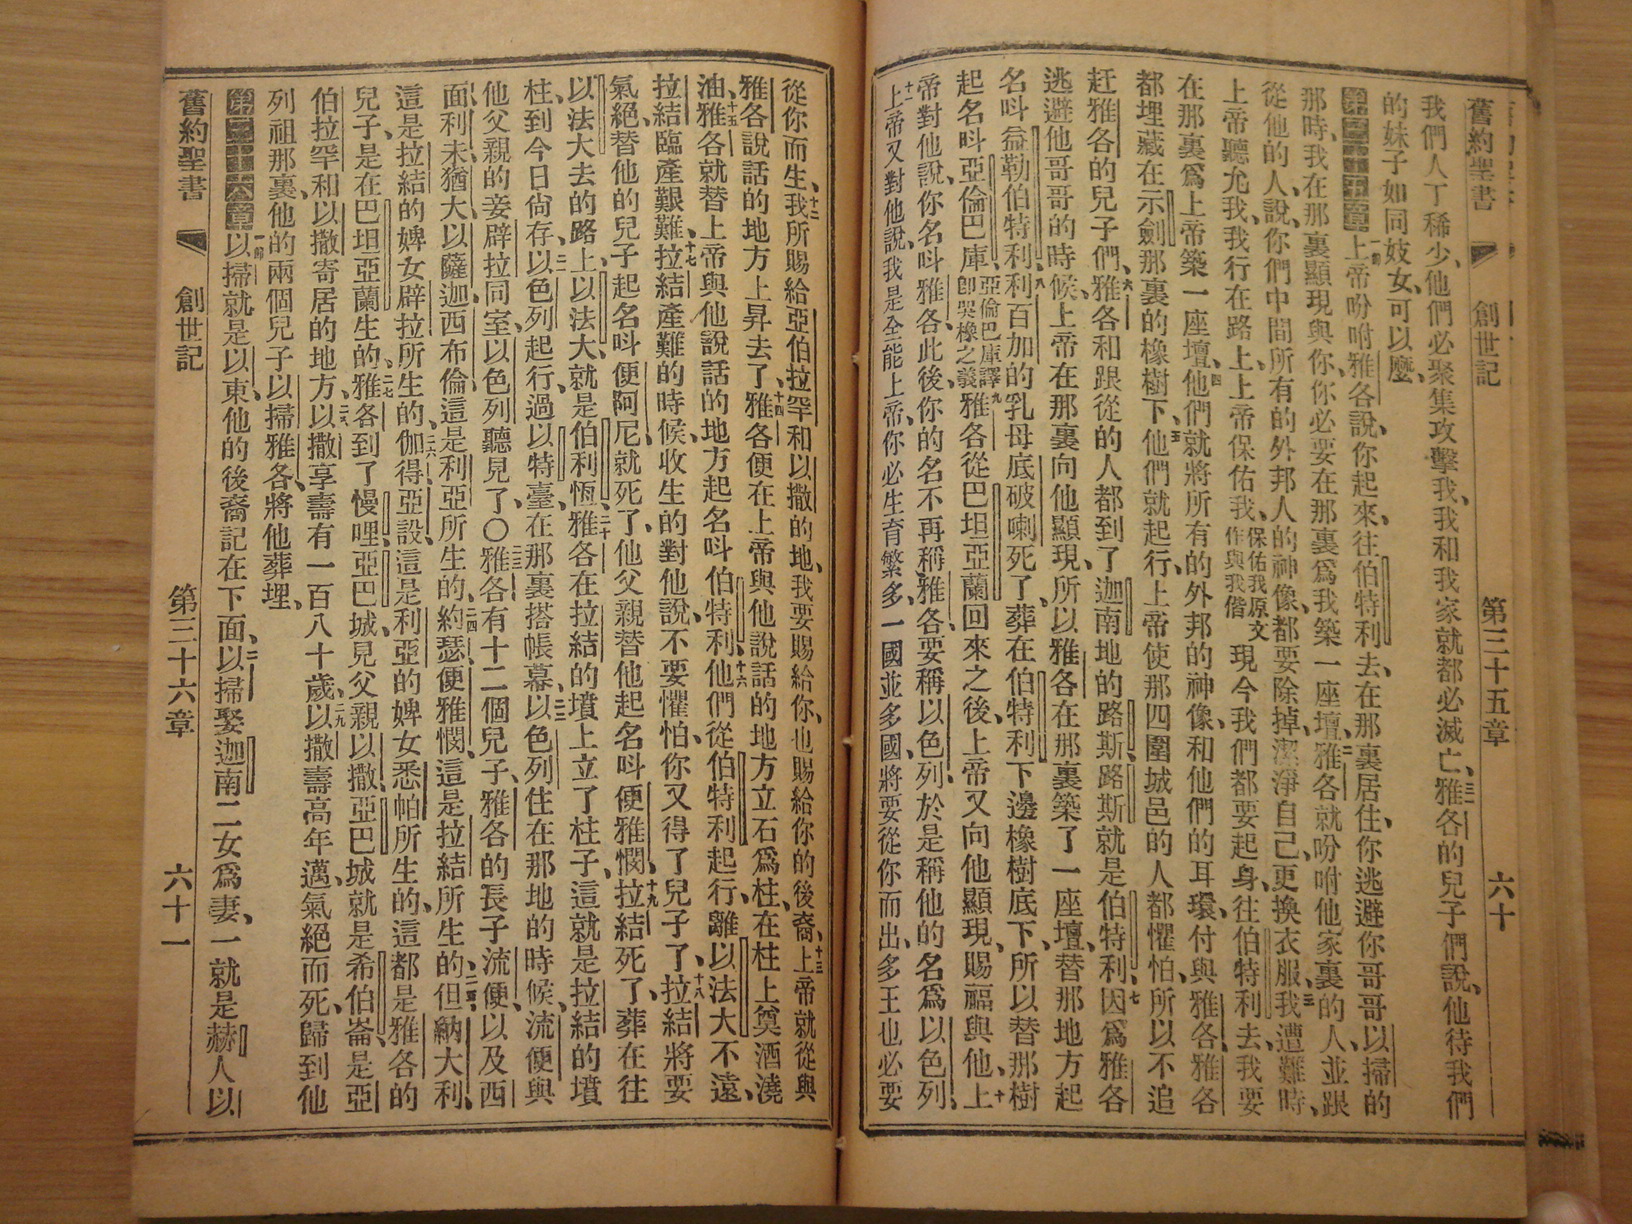 舊約聖書 創世記 第三十五章 六十
我們人丁稀少、他們必聚集攻擊我、我和我家就都必滅亡、三一雅各的兒子們說、他待我們
的妹子如同妓女、可以麼、
第三十五章一節上帝吩咐雅各說、你起來、往伯特利去、在那裏居住、你逃避你哥哥以掃的
那時、我在那裏顯現與你、你必要在那裏爲我築一座壇、二雅各就吩咐他家裏的人、並跟
從他的人、說、你們中間所有的外邦人的神像、都要除掉、潔淨自己、更換衣服、三我遭難時、
上帝聽允我、我行在路上、上帝保佑我、保佑我原文作與我偕現今我們都要起身、往伯特利去、我要
在那裏爲上帝築一座壇、四他們就將所有的外邦的神像、和他們的耳環、付與雅各、雅各
都埋藏在示劍那裏的橡樹下、五他們就起行、上帝使那四圍城邑的人都懼怕、所以不追
赶雅各的兒子們、六雅各和跟從的人都到了迦南地的路斯、路斯就是伯特利、七因爲雅各
逃避他哥哥的時候、上帝在那裏向他顯現、所以雅各在那裏築了一座壇、替那地方起
名呌益勒伯特利、八利百加的乳母底破喇死了、葬在伯特利下邊橡樹底下、所以替那樹
起名呌亞倫巴庫、亞倫巴庫譯卽哭橡之義九雅各從巴坦亞蘭回來之後、上帝又向他顯現、賜福與他、十上
帝對他說、你名呌雅各、此後、你的名不再稱雅各、要稱以色列、於是稱他的名爲以色列、
十一上帝又對他說、我是全能上帝、你必生育繁多、一國並多國、將要從你而出、多王也必要
從你而生、十二我所賜給亞伯拉罕和以撒的地、我要賜給你、也賜給你的後裔、十三上帝就從與
雅各說話的地方上昇去了、十四雅各便在上帝與他說話的地方立石爲柱、在柱上奠酒澆
油、十五雅各就替上帝與他說話的地方起名呌伯特利、十六他們從伯特利起行、離以法大不遠、
拉結臨產艱難、十七拉結產難的時候、收生的對他說、不要懼怕、你又得了兒子了、十八拉結將要
氣絕、替他的兒子起名呌便阿尼、就死了、他父親替他起名呌便雅憫、十九拉結死了、葬在往
以法大去的路上、以法大、就是伯利恆、二十雅各在拉結的墳上立了柱子、這就是拉結的墳
柱、到今日尙存、二一以色列起行、過以特臺、在那裏搭帳幕、二二以色列住在那地的時候、流便與
他父親的妾辟拉同室、以色列聽見了、〇二三雅各有十二個兒子、雅各的長子流便、以及西
面、利未、猶大、以薩迦、西布倫、這是利亞所生的、二四約瑟、便雅憫、這是拉結所生的、二五但、納大利、
這是拉結的婢女辟拉所生的、二六伽得、亞設、這是利亞的婢女悉帕所生的、這都是雅各的
兒子、是在巴坦亞蘭生的、二七雅各到了慢哩、亞巴城、見父親以撒、亞巴城就是希伯崙、是亞
伯拉罕和以撒寄居的地方、二八以撒享壽有一百八十歲、二九以撒壽高年邁、氣絕而死、歸到他
列祖那裏、他的兩個兒子以掃、雅各、將他葬埋、
第三十六章一節以掃就是以東、他的後裔記在下面、二以掃娶迦南二女爲妻、一就是赫人以
舊約聖書 創世記 第三十六章 六十一